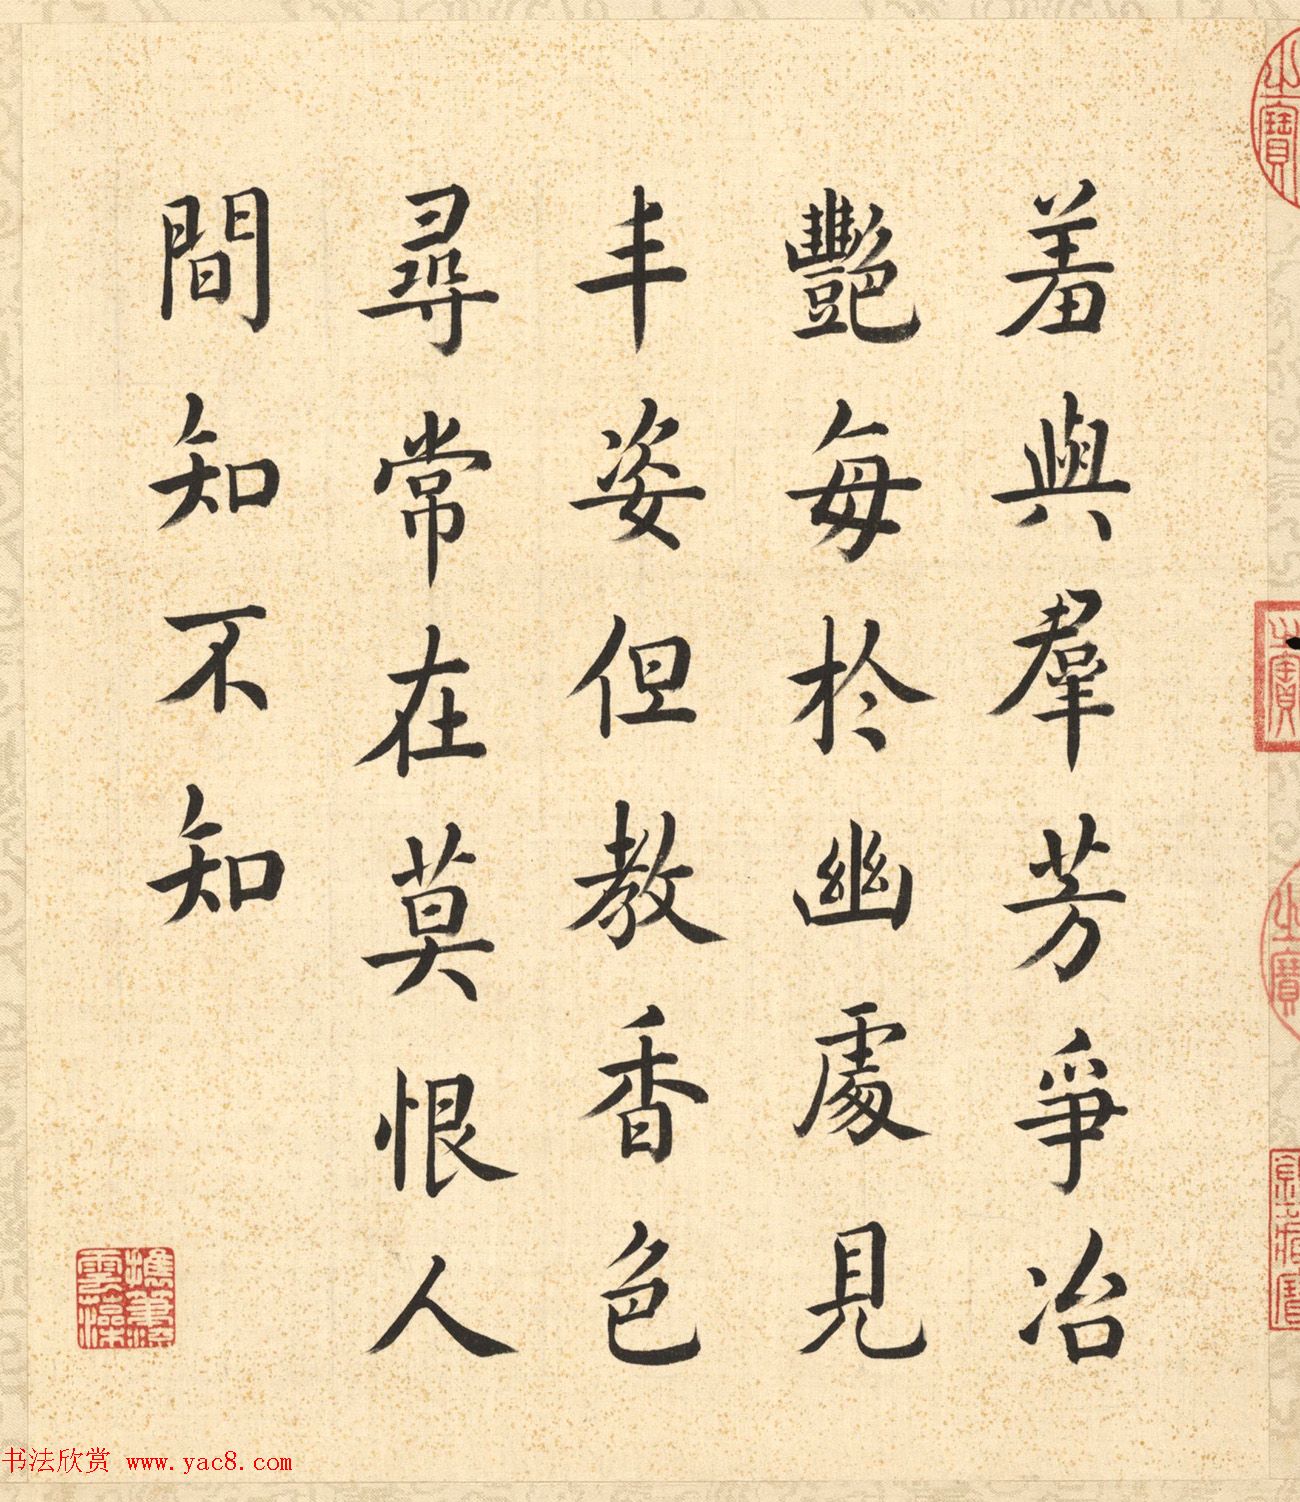 羞與羣芳爭冶
艷每於幽處見
丰姿但教香色
尋常在莫恨人
間知不知
書法欣赏 www.yac8.com